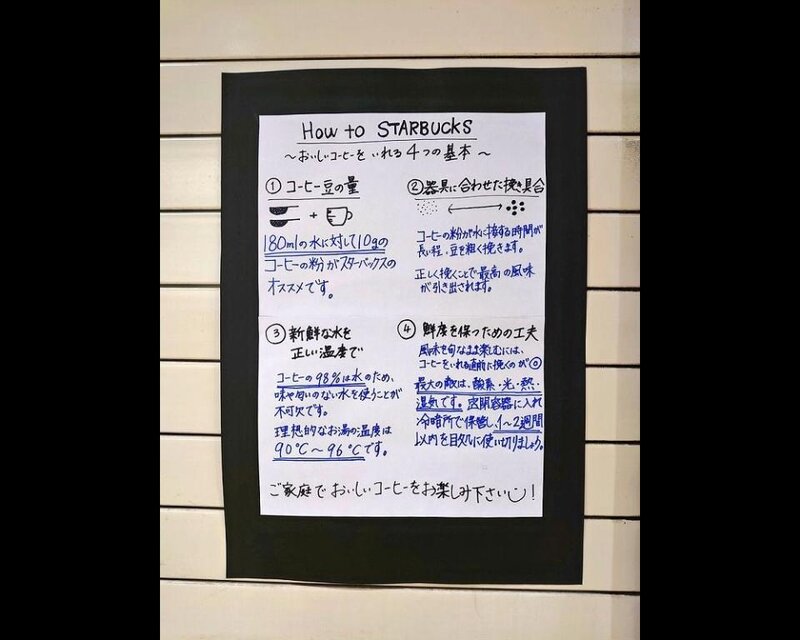 How to STARBUCKS
～おいしいコーヒーをいれる4つの基本～
① コーヒー豆の量
+
180mlの水に対して10gの
コーヒーの粉がスターバックスの
オススメです。
②器具に合わせた挽き具合
コーヒーの粉が水に接する時間が
長い程、豆を粗く挽きます。
正しく挽くことで最高の風味
が引き出されます。
③ 新鮮な水を
正しい温度で
コーヒーの98%は水のため、
味や匂いのない水を使うことが
不可欠です。
理想的なお湯の温度は
90℃～96℃です。
④ 鮮度を保つための工夫
風味を旬なまま楽しむには、
コーヒーをいれる直前に挽くのが◎
最大の敵は、酸素・光・熱・
湿気です。密閉容器に入れ
冷暗所で保管し、1～2週間
以内を目処に使い切りましょう。
ご家庭でおいしいコーヒーをお楽しみ下さい!